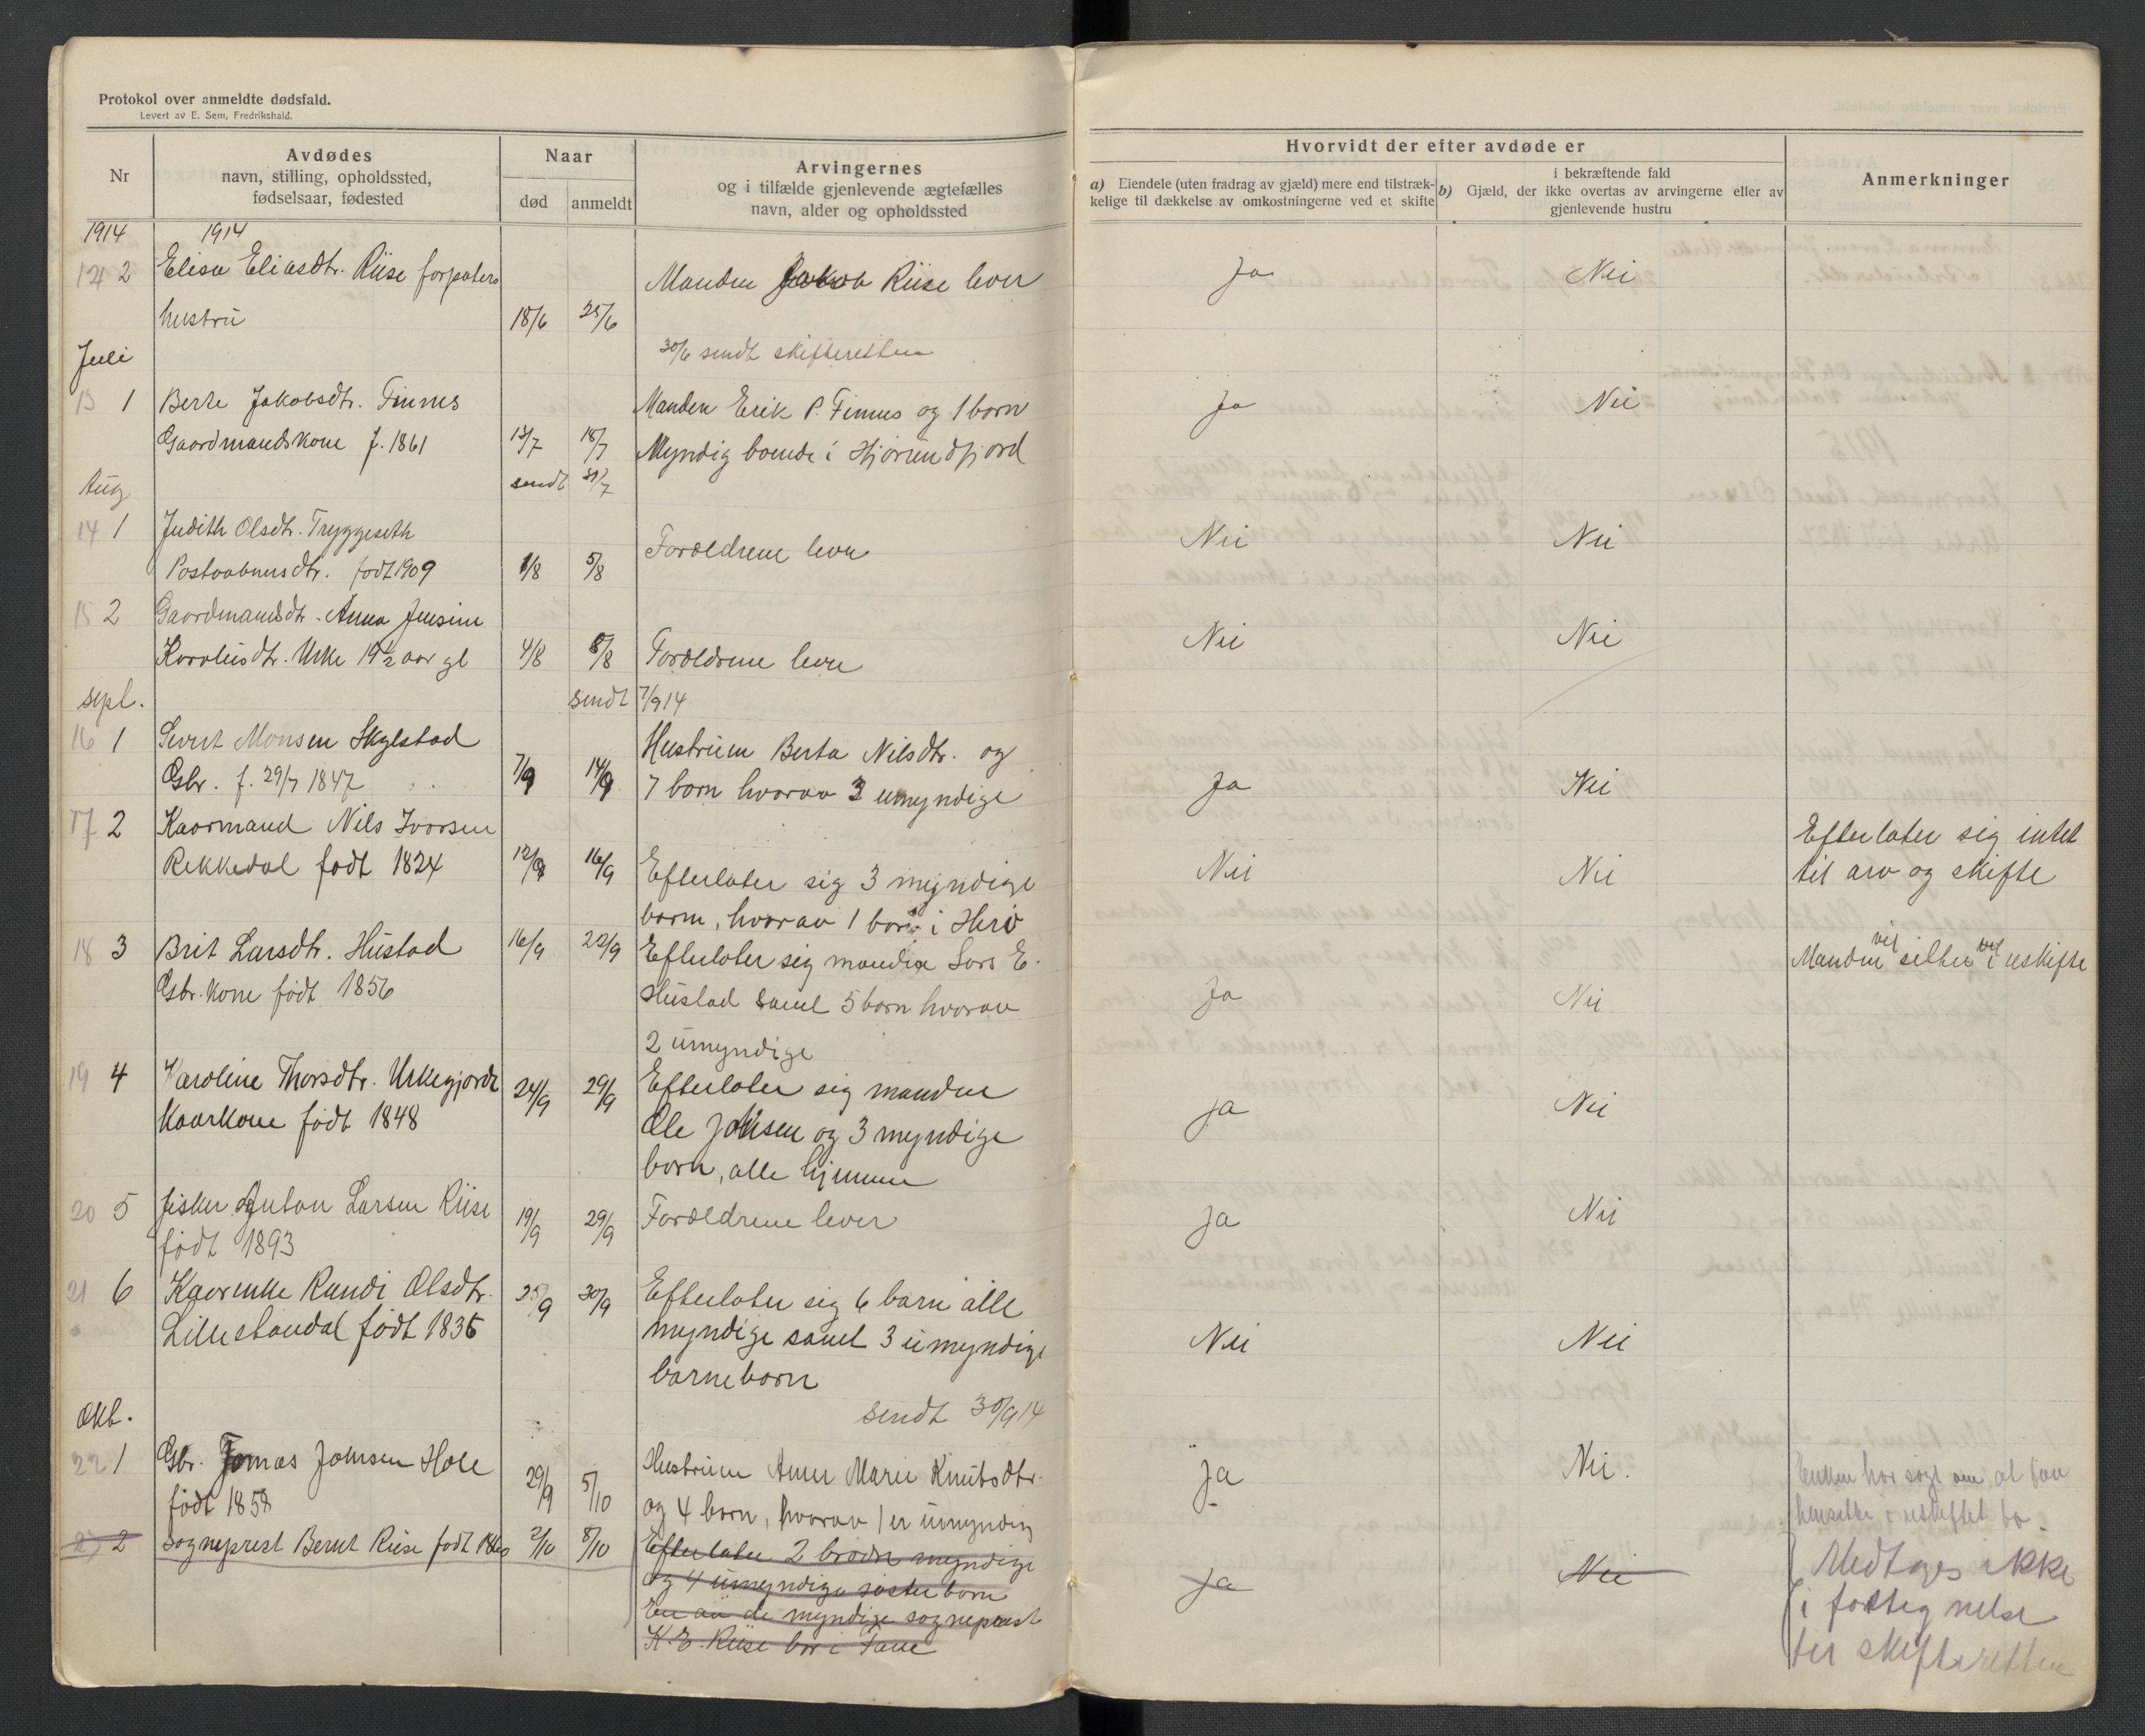 Protokol over anmeldte dødsfald.
Levert av E. Sem, Fredrikshald.
Nr
Avdødes
navn, stilling, opholdssted,
fødselsaar, fødested
Naar
død
anmeldt
Arvingernes
og i tilfælde gjenlevende ægtefælles
navn, alder og opholdssted
Hvorvidt der efter avdøde er
a) Eiendele (uten fradrag av gjæld) mere end tilstræk-
kelige til dækkelse av omkostningerne ved et skifte
i bekræftende fald
b) Gjæld, der ikke overtas av arvingerne eller av
gjenlevende hustru
Anmerkninger
1914 1914
12 2 Elisa Eliasdtr. Riise forpakters Manden Jakob Riise lever Ja Nei
hustru 18/6 25/6
30/6 sendt skifteretten
Juli
13 1 Berte Jakobsdtr. Finnes Manden Erik P. Finnes og 1 born Ja Nei
Gaardmandskone f. 1861 13/7 18/7 Myndig boende i Hjørundfjord
sendt 31/7
Aug
14 1 Judith Olsdtr. Tryggeseth Forældrene lever Nei Nei
Postaabnersdtr. født 1909 1/8 5/8
15 2 Gaardmandsdtr. Anna Jensine Nei Nei
Karolusdtr. Urke 19 1/2 aar gl 4/8 8/8 Forældrene lever
sept. sendt 7/9 14
16 1 Sivert Monsen Skylstad Hustruen Berta Nilsdtr. og
Gbr. f. 29/7 1847 7/9 14/9 7 born hvorav 3 umyndige Ja Nei
17 2 Kaarmand Nils Ivarsen Efterlater sig intet
Rekkedal født 1824 12/9 16/9 Efterlater sig 3 myndige Nei Nei til arv og skifte
born, hvorav 1 bor i Herø
18 3 Brit Larsdtr. Hustad 16/9 22/9 Efterlater sig manden Lars E. Manden vil sitte i uskifte
Gbr. kone født 1856 Hustad samt 5 born hvorav Ja Nei
2 umyndige
19 4 Karoline Thorsdtr. Urkegjærde 24/9 29/9 Efterlater sig manden
Kaarkone født 1848 Ole Johnsen og 3 myndige Ja Nei
born, alle hjemme
20 5 fisker Anton Larsen Riise 19/9 29/9 Forældrene lever Ja Nei
født 1893
21 6 Kaarenke Randi Olsdtr. 25/9 30/9 Efterlater sig 6 barn alle
Lillestandal født 1836 myndige samt 3 umyndige Nei Nei
barneborn
sendt 30/9 14
Okt.
22 1 Gbr. Jonas Johnsen Hole Hustruen Anne Marie Knutsdtr. Ja Nei. Enken har søgt om at faa
født 1858 29/9 5/10 og 4 born, hvorav 1 er umyndig hensitte i uskiftet bo.
23 2 sogneprest Bernt Riise født 1860 2/10 8/10 Efterlater 2 brødre myndige Ja Nei Medtages ikke
og 4 umyndige søsterborn i fortegnelse
En av de myndige sogneprest til skifteretten
K. E. Riise bor i Fane